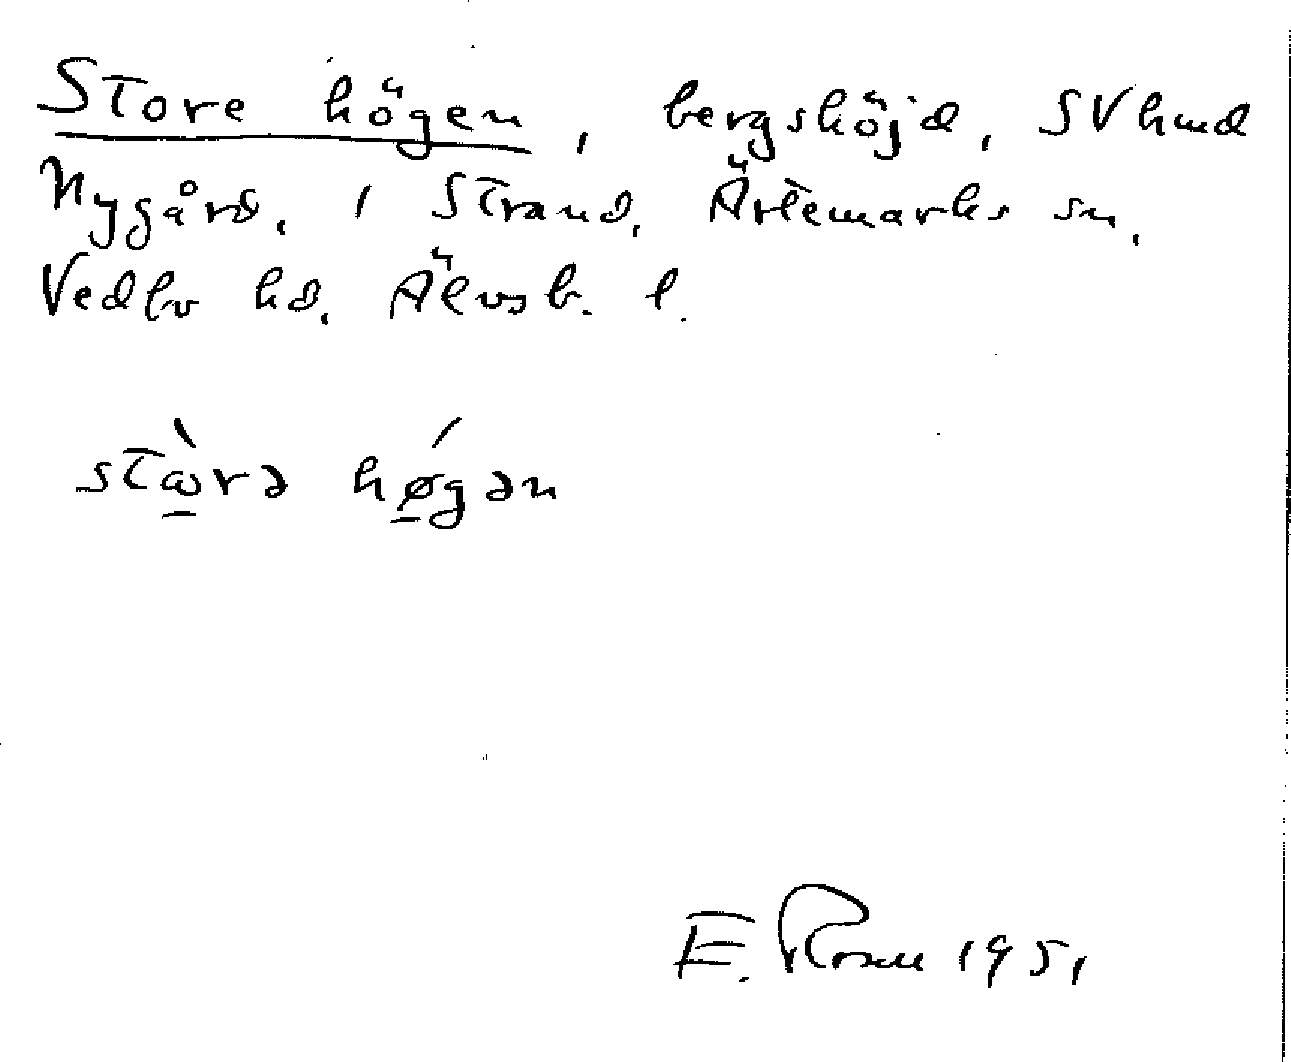 Store högen, bergshöjd, SV hmd
Nygård, i Strand, Ärtemarks sn,
Vedbo hd, Älvsb. l.
stὼ̱rə hǿ̱gən
E. Rosen 1951